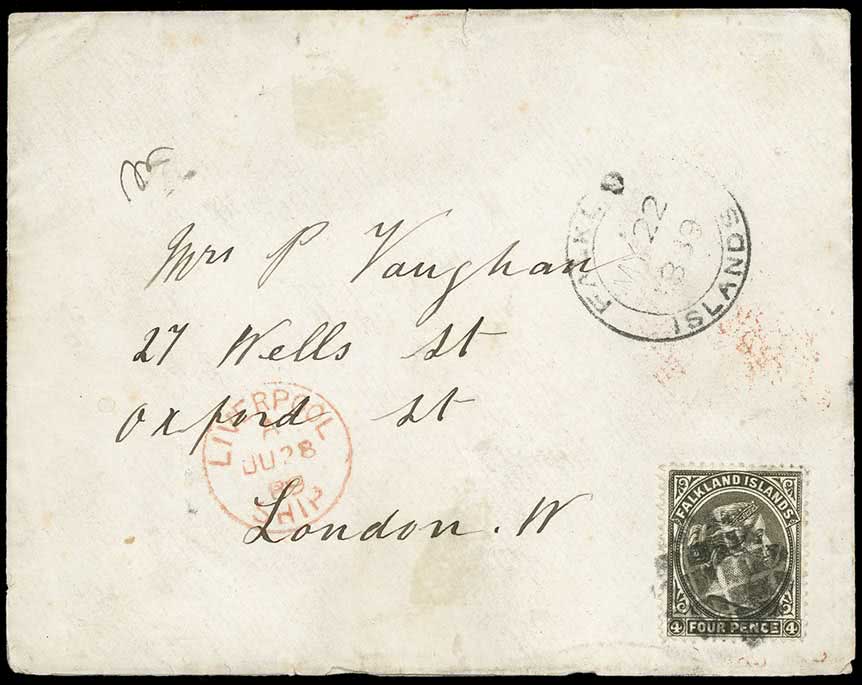 FALKL D
MY 22
89
ISLANDS
Mrs P Vaughan
27 Wells St
Oxford St
London. W
LIVERPOOL
A
JU 28
89
SHIP
FALKLAND ISLANDS
4 FOUR PENCE 4